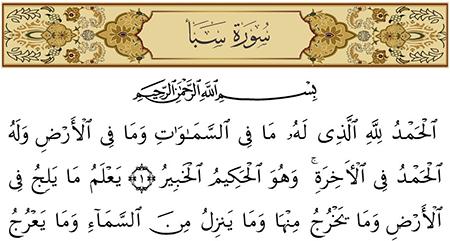 سُورَةُ سَبَأ
بِسْمِ ٱللَّهِ ٱلرَّحْمَٰنِ ٱلرَّحِيمِ
ٱلْحَمْدُ لِلَّهِ ٱلَّذِى لَهُۥ مَا فِى ٱلسَّمَٰوَٰتِ وَمَا فِى ٱلْأَرْضِ وَلَهُ
ٱلْحَمْدُ فِى ٱلْأَخِرَةِ ۚ وَهُوَ ٱلْحَكِيمُ ٱلْخَبِيرُ ﴿١﴾ يَعْلَمُ مَا يَلِجُ فِى
ٱلْأَرْضِ وَمَا يَخْرُجُ مِنْهَا وَمَا يَنزِلُ مِنَ ٱلسَّمَآءِ وَمَا يَعْرُجُ